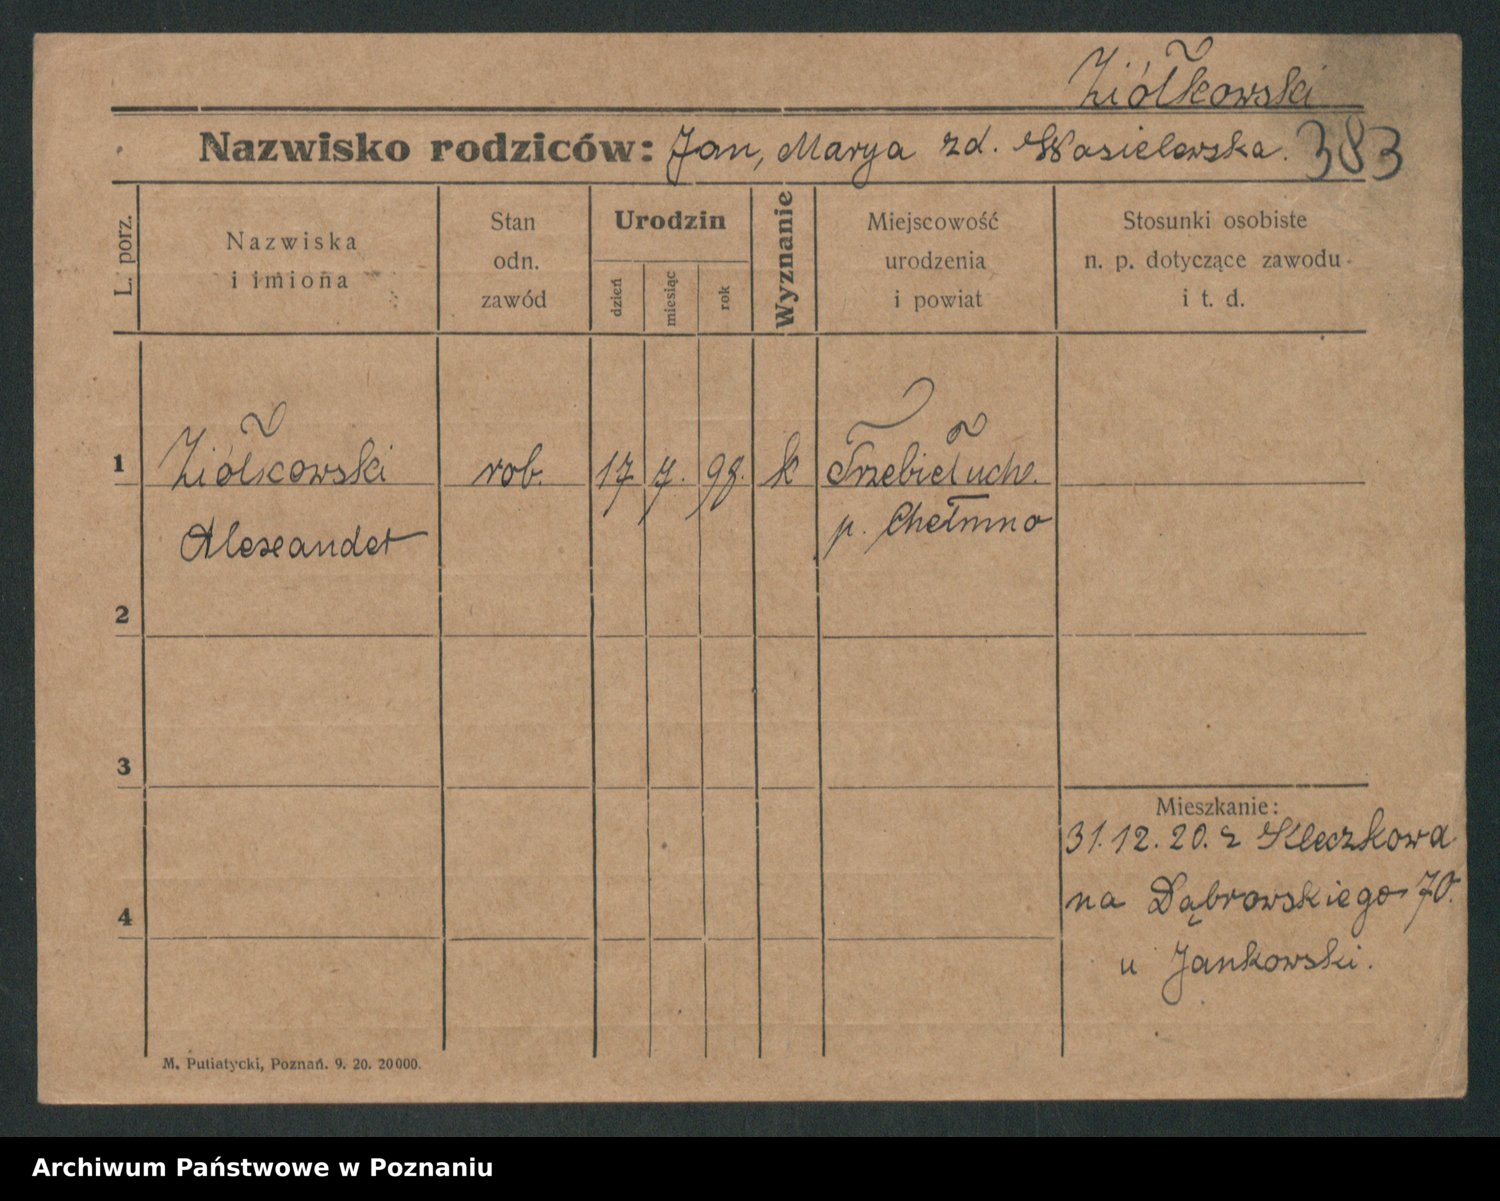 Ziółkowski
Nazwisko rodziców: Jan, Marya zd. Wasielewska. 383
L. porz.
Nazwiska
i imiona
Stan
odn.
zawód
Urodzin
dzień
miesiąc
rok
Wyznanie
Miejscowość
urodzenia
i powiat
Stosunki osobiste
n. p. dotyczące zawodu
i t. d.
1 Ziółkowski rob. 17 7. 98. k Trzebiełuch.
Alexander p. Chełmno
2
3
Mieszkanie:
31.12.20. z Kleczkowa
na Dąbrowskiego 70.
4
u Jankowski.
M. Putiatycki, Poznań. 9. 20. 20000.
Archiwum Państwowe w Poznaniu